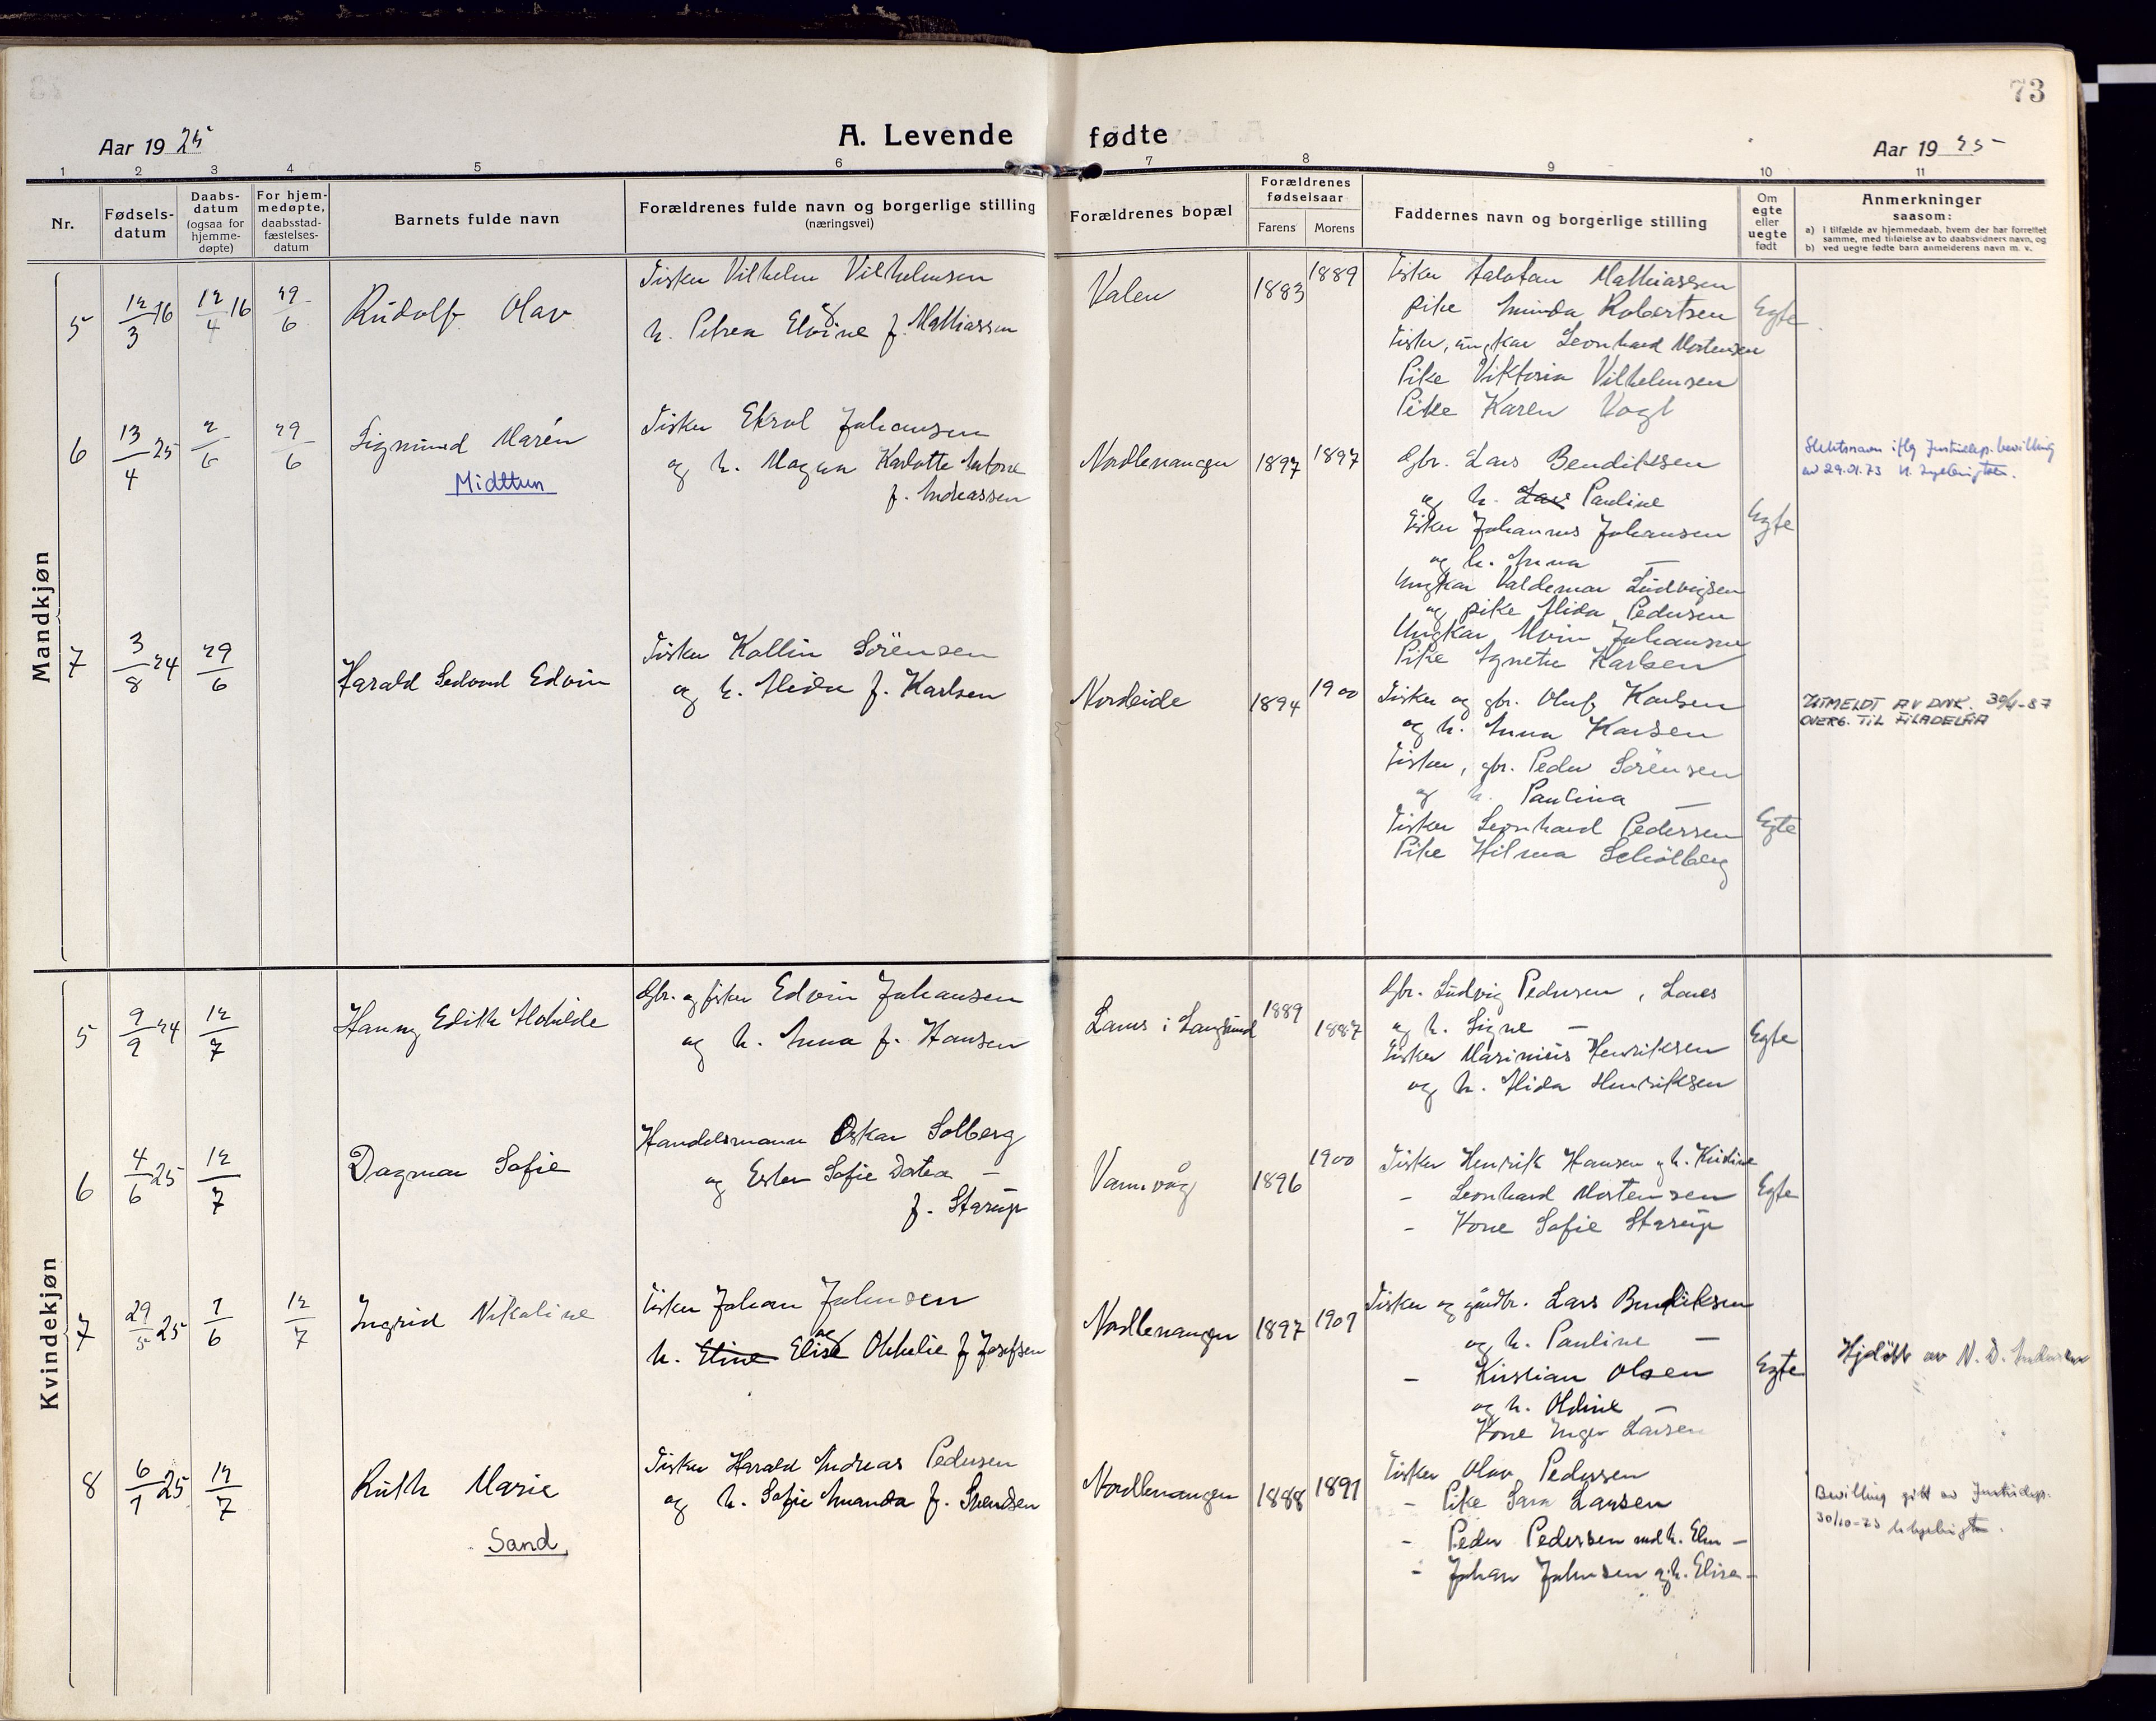 73
Aar 1925
A. Levende fødte
Aar 1925
1 2 3 4 5 6 7 8 9 10 11
Nr.
Fødsels-
datum
Daabs-
datum
(ogsaa for
hjemme-
døpte)
For hjem-
medøpte,
daabsstad-
fæstelses-
datum
Barnets fulde navn
Forældrenes fulde navn og borgerlige stilling
(næringsvei)
Forældrenes bopæl
Forældrenes
fødselsaar
Farens Morens
Faddernes navn og borgerlige stilling
Om
egte
eller
uegte
født
Anmerkninger
saasom:
a) I tilfælde av hjemmedaab, hvem der har forrettet
samme, med tilføielse av to daabsvidners navn, og
b) ved uegte fødte barn anmelderens navn m. v.
Mandkjøn
5
12/3 16
12/4 16
29/6
Rudolf Olav
Fisker Vilhelm Vilhelmsen
h. Petrea f. Mathiassen
Valen
1883
1889
Fisker Mathiassen
pike Minda Robertsen
Fisker, ungkar Leonhard Mortensen
Pike Viktoria Vilhelmsen
Pike Karen Vogt
Egte
6
13/4 25
2/6
29/6
Sigmund Marén
Midttun
Fisker Johansen
og h. Magna Karlotte Antone
f. Andreassen
Nordlenangen
1897
1897
Gbr. Lars Bendiksen
og h. Lars Pauline
Fisker Johannes Johansen
og h. Anna —
Ungkar Valdemar Ludvigsen
og pike Alida Pedersen
Ungkar Johansen
Pike Agnete Karlsen
Egte
Slektsnavn iflg Justisdep. bevilling
av 29.01.73
7
3/8 24
29/6
Harald Edvin
Fisker Kollin Sörensen
og h. Alida f. Karlsen
Nordeide
1894
1900
Fisker og gbr. Oluf Karlsen
og h. Anna Karlsen
Fisker, gbr. Peder Sörensen
og h. Paulina —
Fisker Leonhard Pedersen
Pike Hilma Schölberg
Egte
UTMELDT AV DNK.
OVERG. TIL FILADELFIA
Kvindekjøn
5
9/9 24
12/7
Hanny Edith
Gbr. og fisker Edvin Johansen
og h. Anna f. Hansen
Lanes i Langsund
1889
1887
Gbr. Ludvig Pedersen, Lanes
og h. Signe —
Fisker Marinius Henriksen
og h. Alida Henriksen
Egte
6
4/6 25
12/7
Dagmar Sofie
Handelsmann Oskar Solberg
og Ester Sofie —
f. Starup
Vannvåg
1896
1900
Fisker Henrik Hansen og h.
— Leonhard Mortensen
— Kone Sofie Starup
Egte
7
29/5 25
1/6
12/7
Ingrid Nikoline
Fisker Johan Johnsen
og
h. Eline Elise f Josefsen
Nordlenangen
1897
1901
Fisker og gårdbr. Lars Bendiksen
og h. Pauline —
— Kristian Olsen
og h. Oldine —
Kone Inger Larsen
Egte
Hjdöbt av N. D.
8
6/1 25
12/7
Ruth Marie
Sand
Fisker Harald Andreas Pedersen
og h. Sofie Amanda f. Svendsen
Nordlenangen
1888
1891
Fisker Olav Pedersen
— Pike Sara Larsen
— Peder Pedersen med h. —
— Johan Johnsen og h. Elise —
Bevilling gitt av Justisdep.
30/10-73